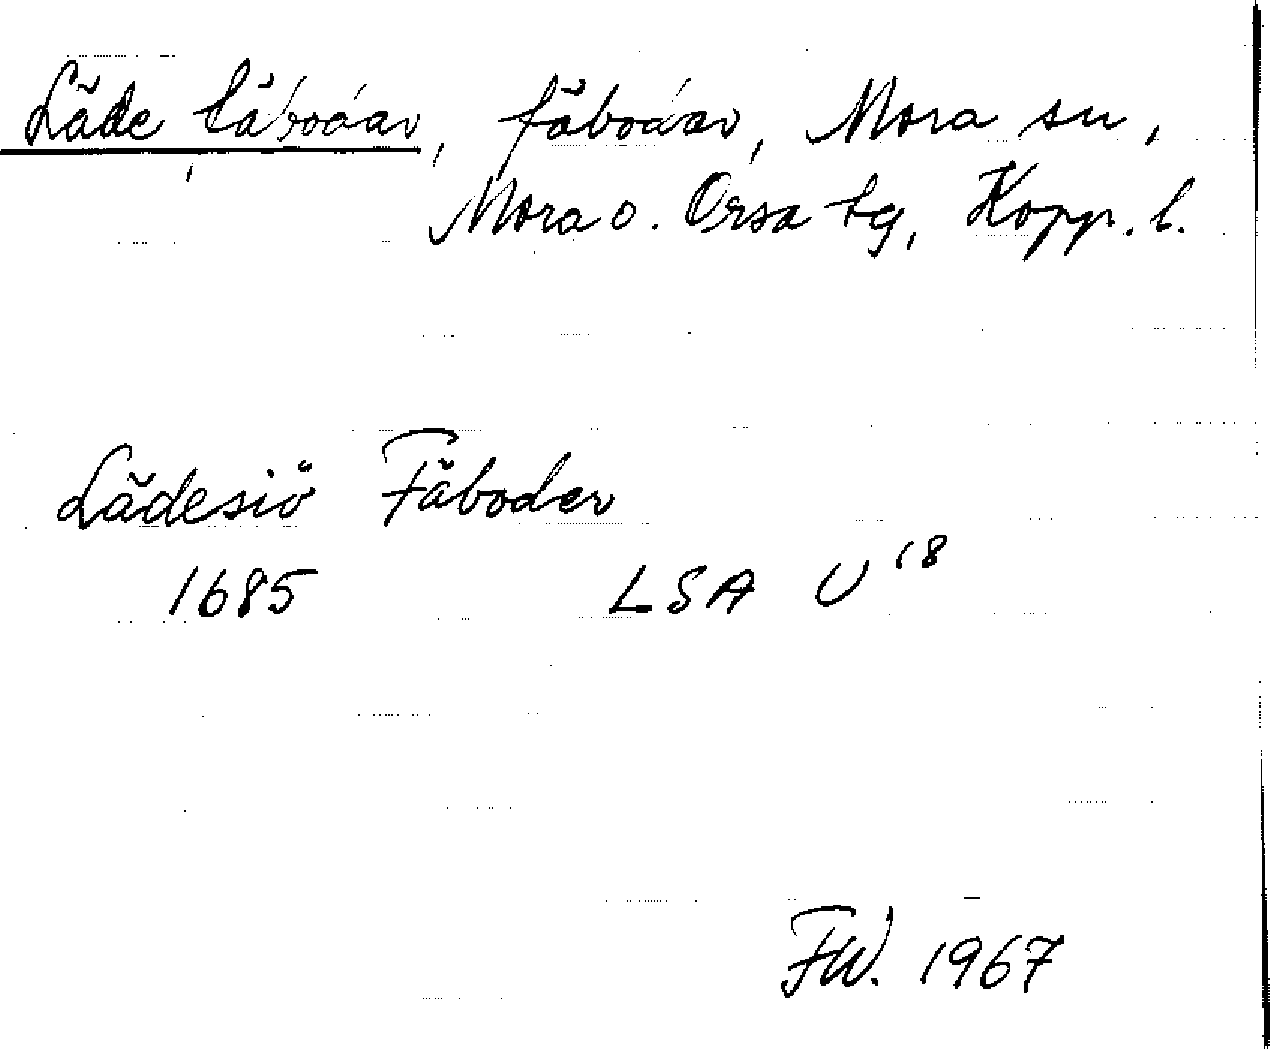 Läde fäbodar, fäbodar, Mora sn,
Mora o. Orsa tg, Kopp. l.
Lädesiö Fäboder
1685 LSA U18
FW. 1967